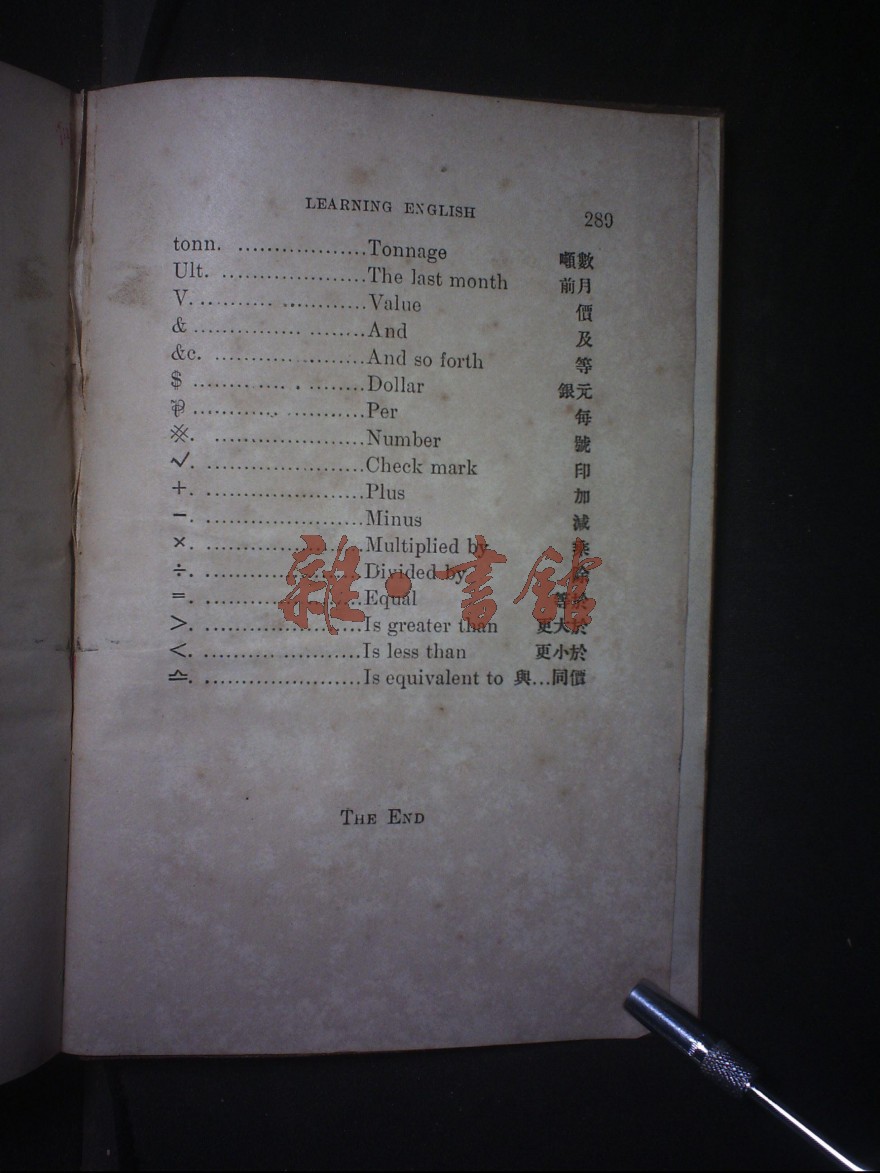 LEARNING ENGLISH 289
tonn. ..................Tonnage 噸數
Ult. ....................The last month 前月
V. .......... ............Value 價
& ............... ........And 及
&c. .....................And so forth 等
$ ........................Dollar 銀元
⅌ ........................Per 每
※. .....................Number 號
✓. ......................Check mark 印
+. .......................Plus 加
−. ......................Minus 減
×. ......................Multiplied by 乘
÷. ......................Divided by
=. ......................Equal 等於
>. ......................Is greater than 更大於
<. ......................Is less than 更小於
≏. ......................Is equivalent to 與...同價
雜·書館
THE END